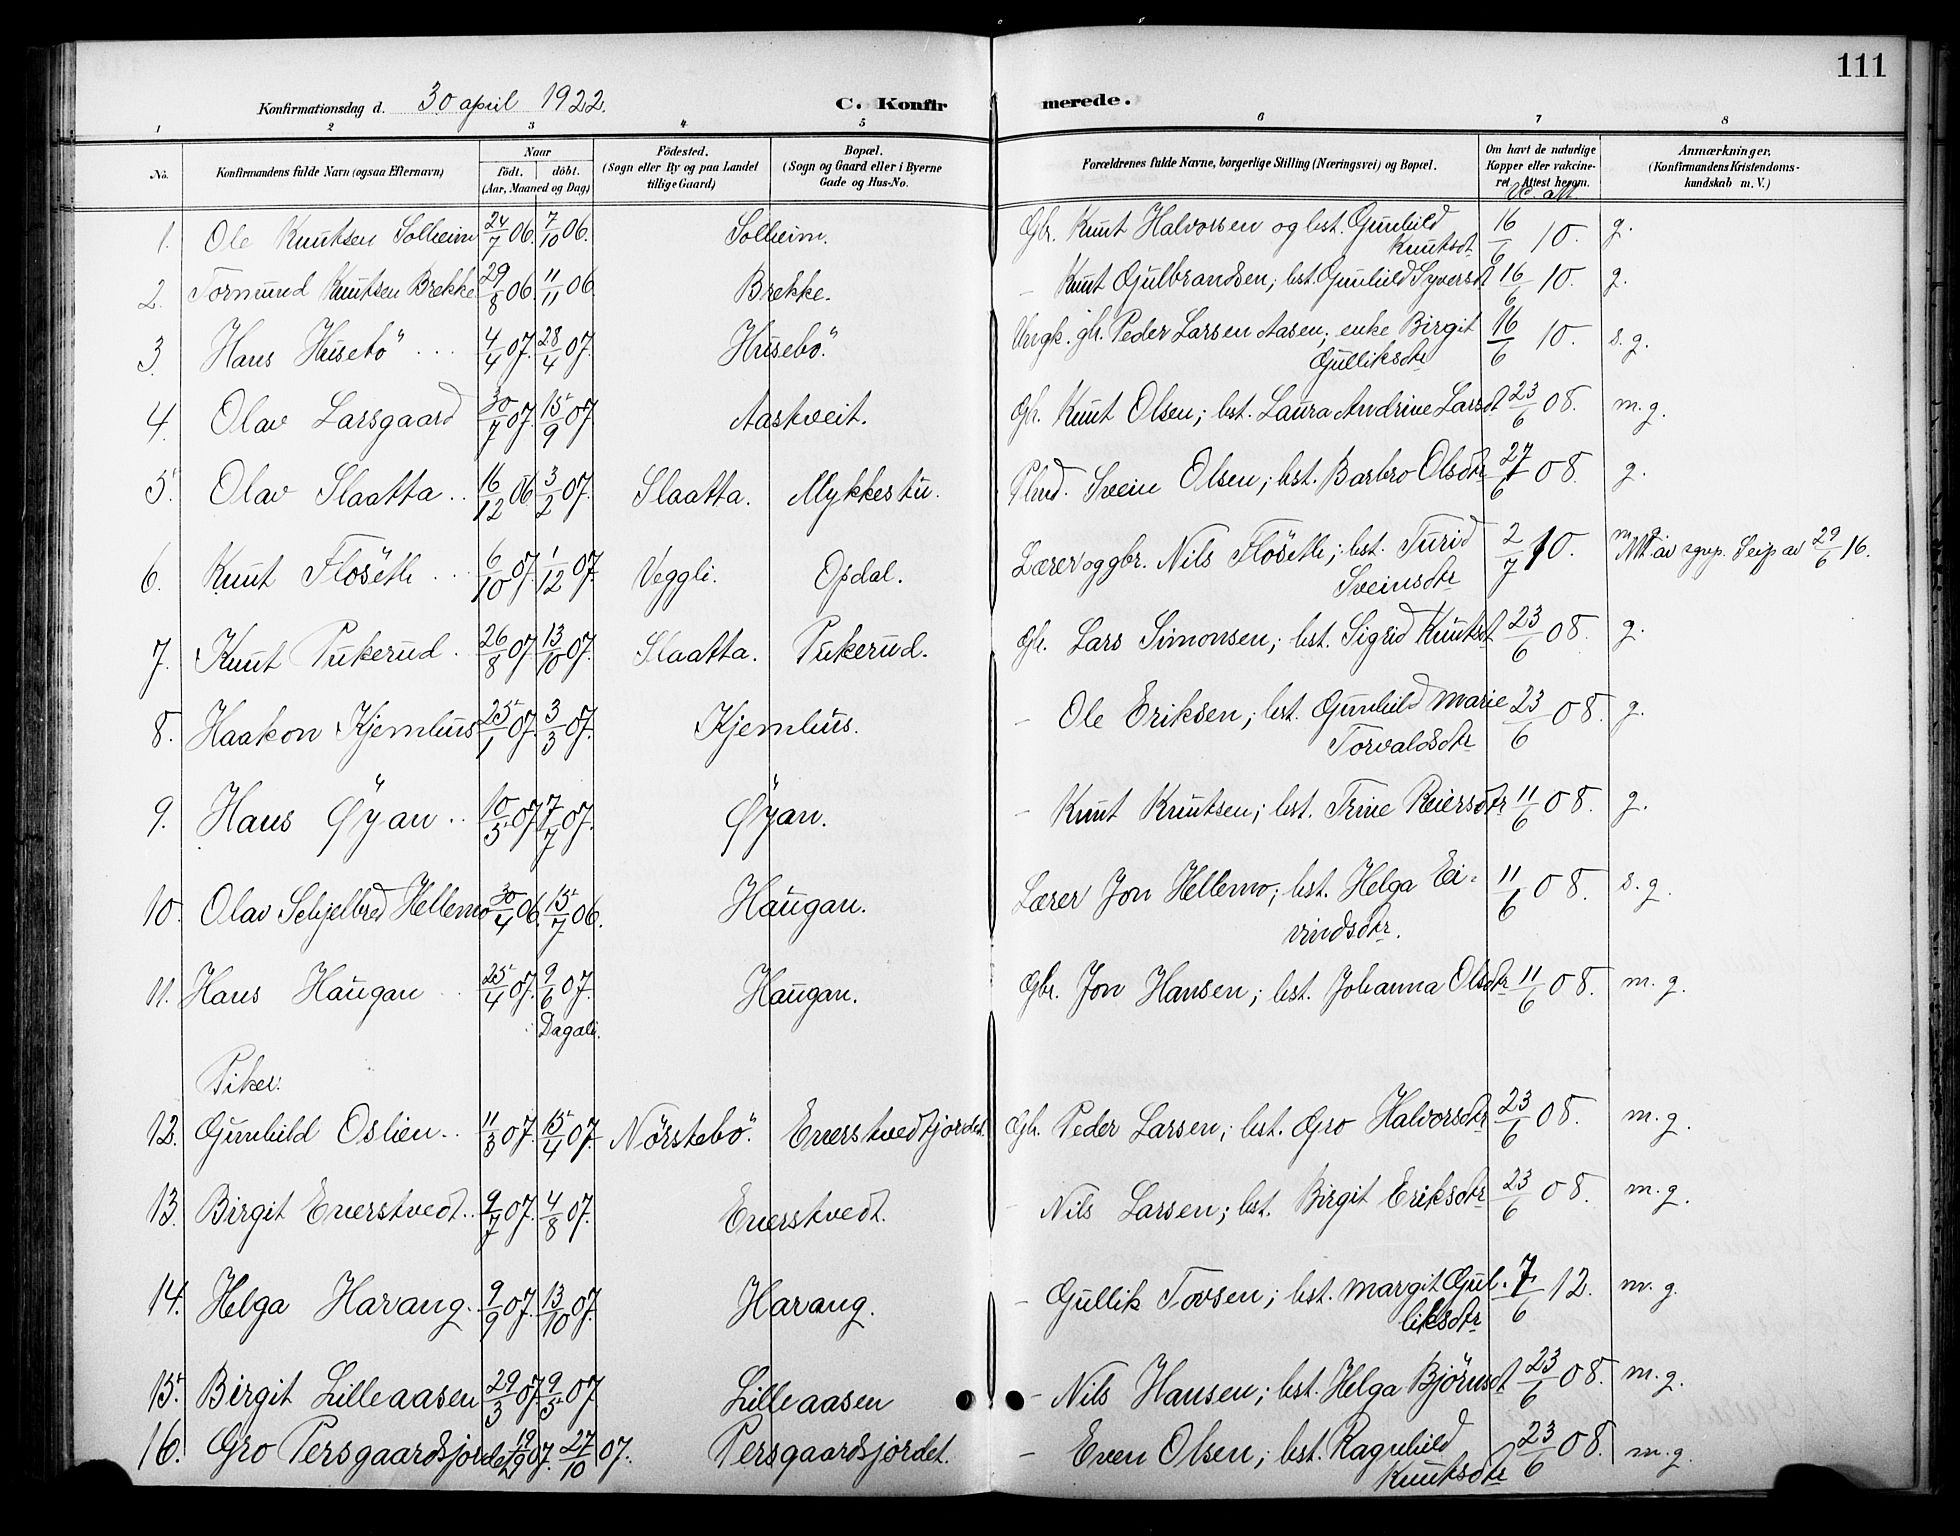 111
Konfirmationsdag d. 30 april 1922. C. Konfirmerede.
1 2 3 4 5 6 7 8
No. Konfirmandens fulde Navn (ogsaa Efternavn) Naar født. døbt. (Aar, Maaned og Dag) Fødested. (Sogn eller By og paa Landet tillige Gaard) Bopæl. (Sogn og Gaard eller i Byerne Gade og Hus-No. Forældrenes fulde Navne, borgerlige Stilling (Næringsvei) og Bopæl. Om havt de naturlige Kopper eller vakcineret. Attest herom. Anmærkninger, (Konfirmandens Kristendomskundskab m. V.)
Vc. att.
1. Ole Knutsen Solheim 24/7 06. 7/10 06. Solheim. Gbr. Knut Halvorsen og hst. Gunhild Knutsdt. 16/6 10. g.
2. Tormund Knutsen Brekke 29/8 06. 11/11 06. Brekke. – Knut Gulbrandsen; hst. Gunhild Syversdt 16/6 10. g.
3. Hans Husebö 4/4 07. 28/4 07. Husebö. Ungk. gbr. Peder Larsen Aasen; enke Birgit Gulliksdtr 16/6 10. s. g.
4. Olav Larsgaard 30/7 07. 15/9 07. Aaskveit. Gbr. Knut Olsen; hst. Laura Andrine Larsdt 23/6 08. m. g.
5. Olav Slaatta 16/12 06. 3/2 07. Slaatta. Mykkestu. Plmd. Svein Olsen; hst. Barbro Olsdtr 27/6 08. g.
6. Knut Flöseth 6/10 07. 1/12 07. Veggli. Opdal. Lærer og gbr. Nils Flöseth; hst. Turid Sveinsdtr 2/7 10. m. g. Att av sgpr. Seip av 29/6 16.
7. Knut Pukerud 26/8 07. 13/10 07. Slaatta. Pukerud. Gbr. Lars Simonsen; hst. Sigrid Knutsdt 23/6 08. g.
8. Haakon Kjemhus 25/1 07. 3/3 07. Kjemhus. – Ole Eriksen; hst. Gunhild Marie Torvaldsdtr 23/6 08. g.
9. Hans Øyan 10/5 07. 7/7 07. Øyan. – Knut Knutsen; hst. Trine Reiersdtr 11/6 08. g.
10. Olav Schjelbred Hellemo 30/4 06. 15/7 06. Haugan. Lærer Jon Hellemo; hst. Helga Eivindsdtr. 11/6 08. s. g.
11. Hans Haugan 25/4 07. 9/6 07. Dagali. Haugan. Gbr. Jon Hansen; hst. Johanna Olsdtr 11/6 08. m. g.
Piker:
12. Gunhild Oslien 11/3 07. 15/4 07. Nörstebö. Enerstvedtjordet. Gbr. Peder Larsen; hst. Gro Halvorsdtr 23/6 08. m. g.
13. Birgit Enerstvedt 9/7 07. 4/8 07. Enerstvedt. – Nils Larsen; hst. Birgit Eriksdtr 23/6 08. m. g.
14. Helga Harang 9/9 07. 13/10 07. Harang. – Gullik Tovsen; hst. Margit Gulliksdtr 7/6 12. m. g.
15. Birgit Lilleaasen 29/3 07. 9/5 07 Lilleaasen – Nils Hansen; hst. Helga Björnsdt 23/6 08. m. g.
16. Gro Persgaardsjordet 19/9 07. 27/10 07. Persgaardsjordet. – Even Olsen; hst. Ragnhild Knutsdtr 23/6 08. m. g.